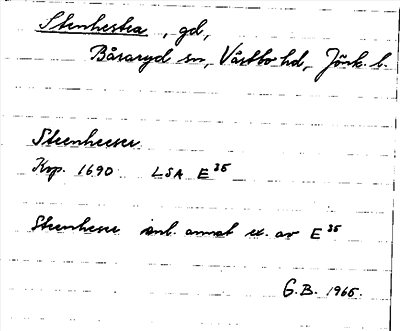 Stenhestra, gd,
Båraryd sn, Västbo hd, Jönk. l.
Steenheseer
Kop. 1690 LSA E 35
Steenhese enl. annat ex. av E 35
G.B. 1965.